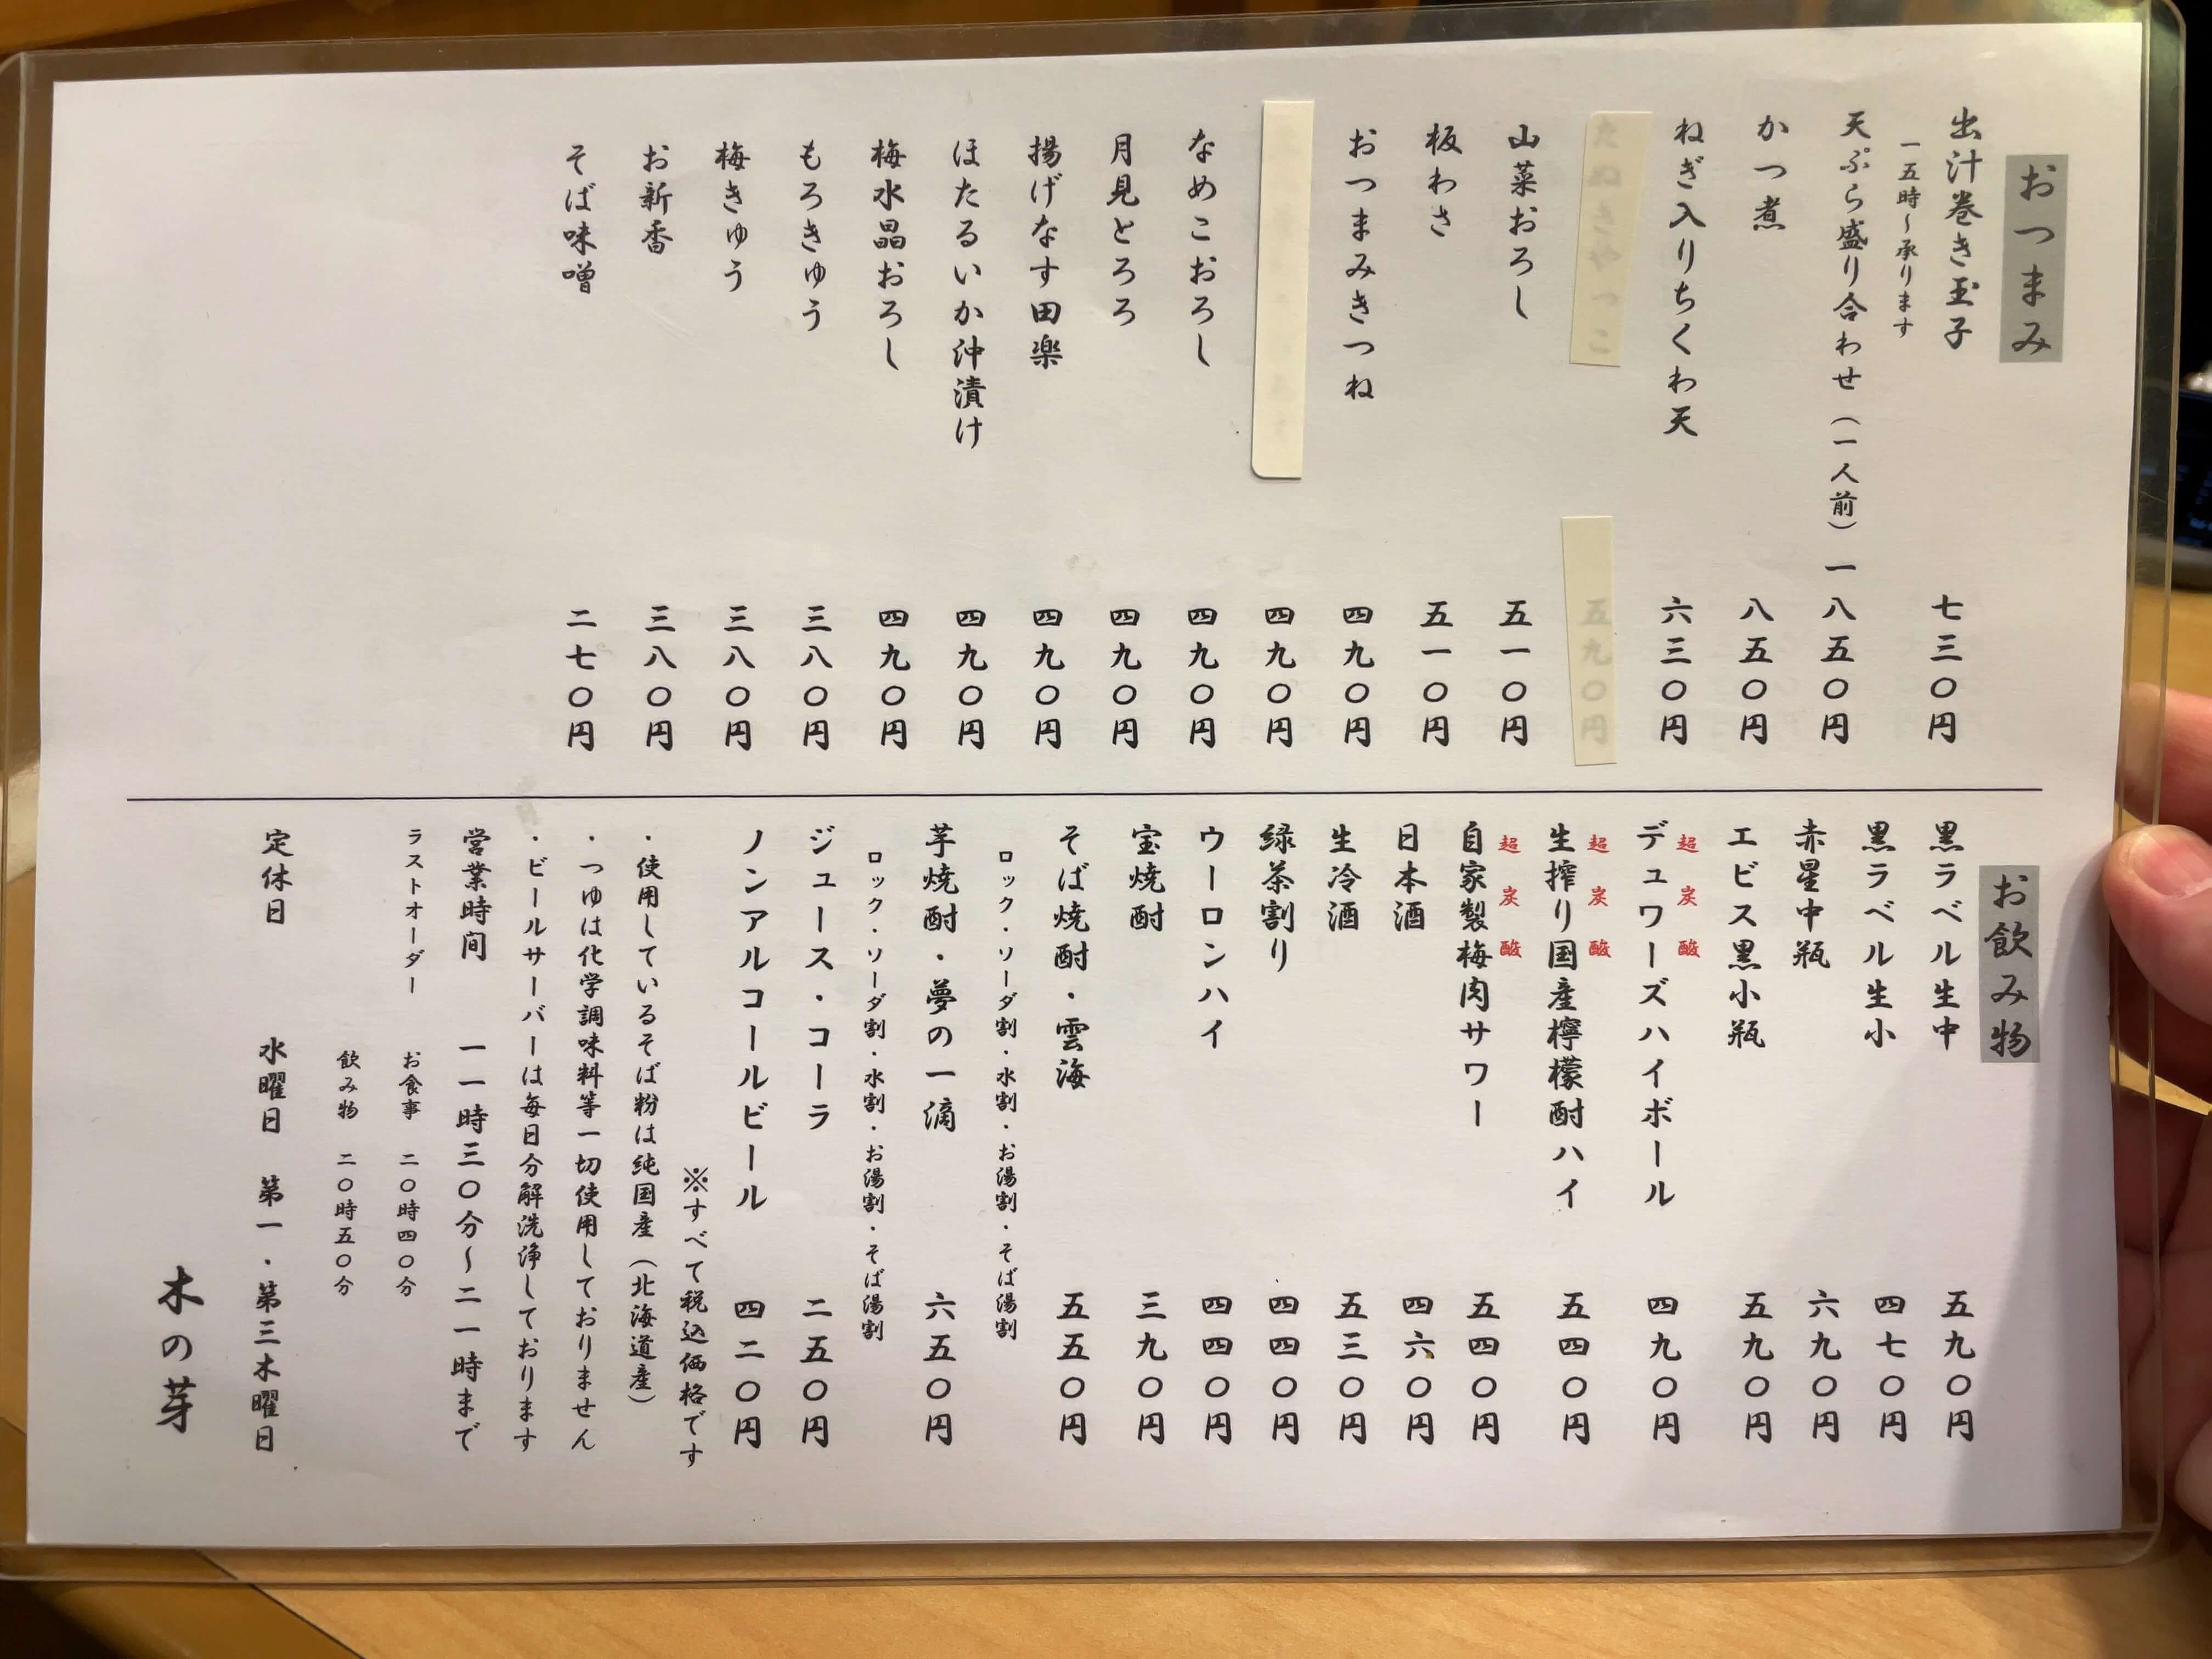 おつまみ
出汁巻き玉子 七三〇円
一五時〜承ります
天ぷら盛り合わせ（一人前）一八五〇円
かつ煮 八五〇円
ねぎ入りちくわ天 六三〇円
たぬきやっこ 五九〇円
山菜おろし 五一〇円
板わさ 五一〇円
おつまみきつね 四九〇円
四九〇円
なめこおろし 四九〇円
月見とろろ 四九〇円
揚げなす田楽 四九〇円
ほたるいか沖漬け 四九〇円
梅水晶おろし 四九〇円
もろきゅう 三八〇円
梅きゅう 三八〇円
お新香 三八〇円
そば味噌 二七〇円
お飲み物
黒ラベル生中 五九〇円
黒ラベル生小 四七〇円
赤星中瓶 六九〇円
エビス黒小瓶 五九〇円
超炭酸
デュワーズハイボール 四九〇円
超炭酸
生搾り国産檸檬酎ハイ 五四〇円
超炭酸
自家製梅肉サワー 五四〇円
日本酒 四六〇円
生冷酒 五三〇円
緑茶割り 四四〇円
ウーロンハイ 四四〇円
宝焼酎 三九〇円
そば焼酎・雲海 五五〇円
ロック・ソーダ割・水割・お湯割・そば湯割
芋焼酎・夢の一滴 六五〇円
ロック・ソーダ割・水割・お湯割・そば湯割
ジュース・コーラ 二五〇円
ノンアルコールビール 四二〇円
※すべて税込価格です
・使用しているそば粉は純国産（北海道産）
・つゆは化学調味料等一切使用しておりません
・ビールサーバーは毎日分解洗浄しております
営業時間 一一時三〇分〜二一時まで
ラストオーダー お食事 二〇時四〇分
飲み物 二〇時五〇分
定休日 水曜日 第一・第三木曜日
木の芽